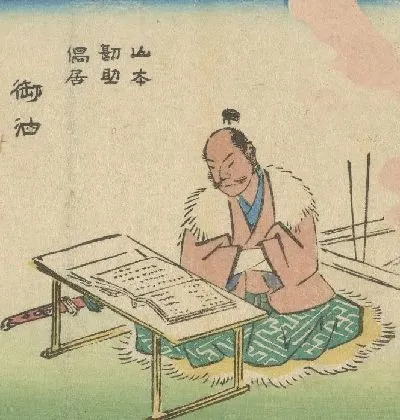 山本
勘助
偶居
御油